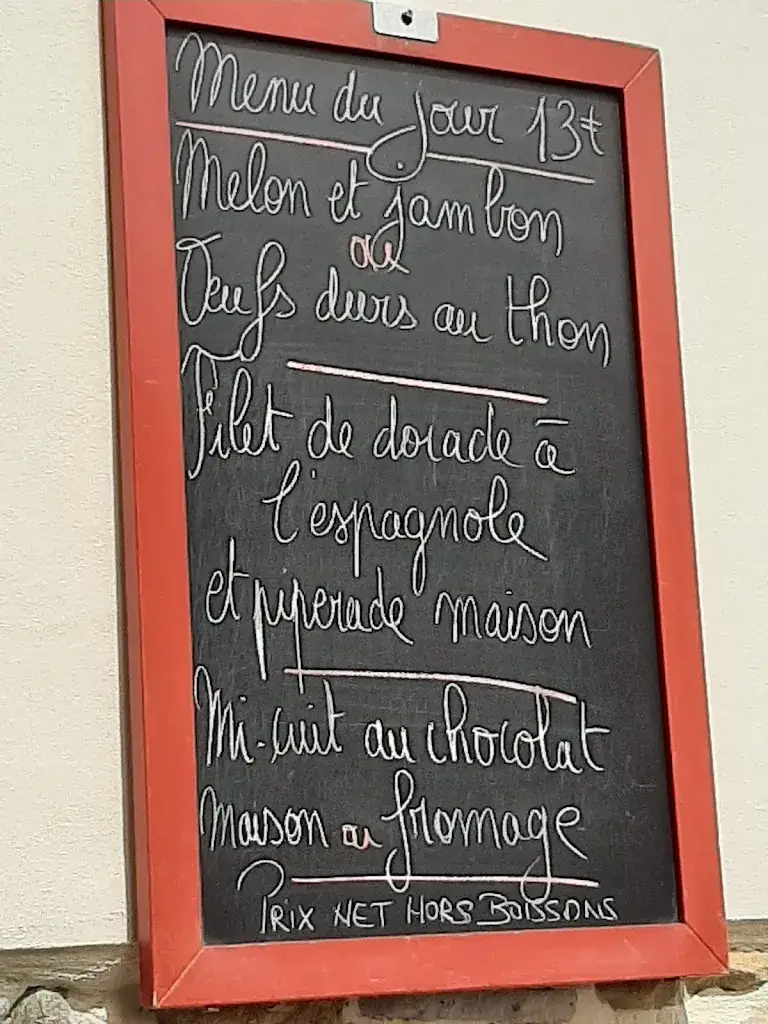 Menu du jour 13€
Melon et jambon
ou
Oeufs durs au thon
Filet de dorade à
l'espagnole
et piperade maison
Mi-cuit au chocolat
Maison ou fromage
PRIX NET HORS BOISSONS